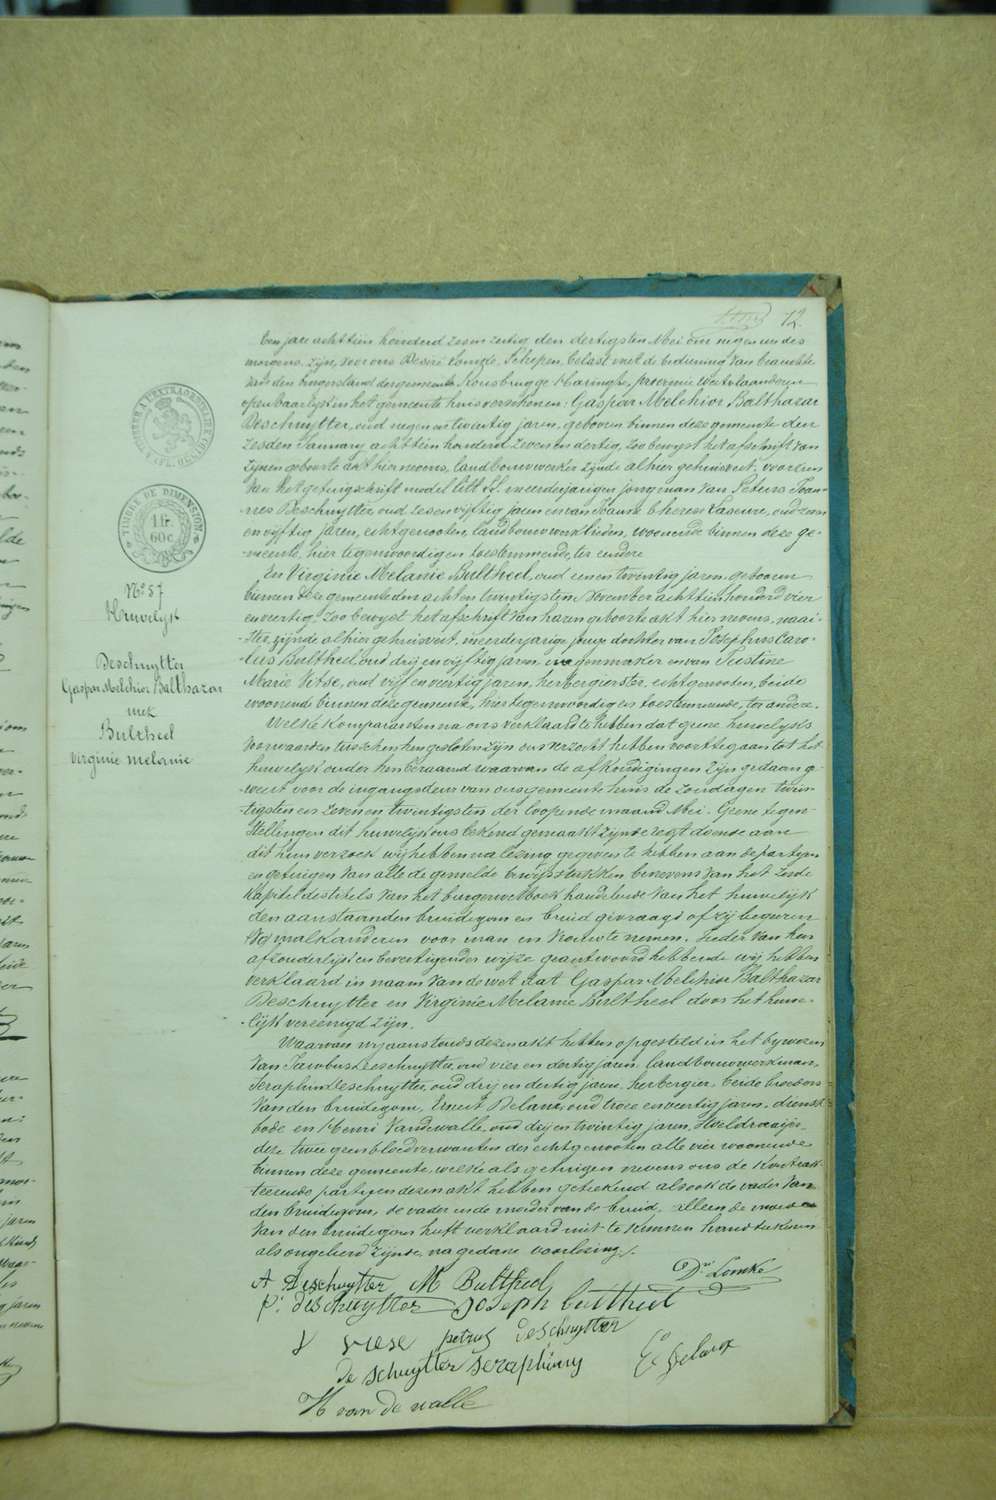 12
Een jare achttien honderd zesen zestig den dertigsten Mei om negen ure des
morgens, zijn voor ons Desiré Lomke, Schepen, belast met de bediening van beambte
van den burgerstand der gemeente Rousbrugge Haringhe, provincie Westvlaanderen
openbaarlijk in het gemeente huis verschenen: Gaspar Melchior Balthazar
Deschuytter, oud negen en twintig jaren, geboren binnen deze gemeente den
zesden January achttien honderd zeven en dertig, zoo bewyst het afschrift van
zijnen geboorte akt hier nevens, landbouwwerker zijnde alhier gehuisvest, voorzien
van het getuigschrift model litt. meerderjarigen jongman van Petrus Joan-
nes Deschuytter oud zes en vijftig jaren en van Joanna Theresa Vaseure, oud zeven
en vijftig jaren, echtgenooten, landbouwwerklieden, woonende binnen deze ge-
meente, hier tegenwoordig en toestemmende, ter eendere
En Virginie Melanie Bultheel, oud een en twintig jaren geboren
binnen deze gemeente den acht en twintigsten November achttien honderd vier
en veertig, zoo bewyst het afschrift van haren geboorte akt hier nevens, naai-
ster, zijnde alhier gehuisvest, meerderjarige jonge dochter van Josephus Caro-
lus Bultheel oud drij en vijftig jaren, wagenmaker en van Justine
Marie Vise, oud vijf en veertig jaren, herbergierster, echtgenooten, beide
woonende binnen deze gemeente, hier tegenwoordig en toestemmende, ter andere.
Welke komparanten na ons verklaard te hebben dat geene huwelijks
voorwaarden tusschen hen gesloten zijn ons verzocht hebben voort te gaan tot het
huwelijk onder hen beraamd waarvan de afkondigingen zijn gedaan ge-
weest voor de ingangdeur van ons gemeente huis de zondagen twin-
tigsten en zeven en twintigsten der loopende maand Mei. Geene tegen-
stellingen dit huwelijk ons bekend gemaakt zijnde regt doende aan
dit hun verzoek wij hebben na lezing gegeven te hebben aan de partyen
en getuigen van alle de gemelde bewijsstukken benevens van het zesde
Kapitel des titels van het burger wetboek handelende van het huwelijk
den aanstaanden bruidegom en bruid gevraagd of zij begeren
malkanderen voor man en vrouw te nemen. Ieder van hen
afzonderlijk en bevestigender wijze geantwoord hebbende wij hebben
verklaard in naam van de wet dat Gaspar Melchior Balthazar
Deschuytter en Virginie Melanie Bultheel door het huwe-
lijk vereenigd zijn.
Waarvan wij aanstonds dezen akt hebben opgesteld in het bywezen
van Jacobus Deschuytter, oud vier en dertig jaren, landbouwwerkman,
Seraphin Deschuytter, oud drij en dertig jaren, herbergier, beide broeders
van den bruidegom, Ernest Delanx, oud twee en veertig jaren, dienst
bode en Henri Vandewalle, oud drij en twintig jaren, stoeldraaijer
deze twee geen bloedverwanten der echtgenooten alle vier woonende
binnen deze gemeente, welke als getuigen nevens ons de kontrak-
teerende partyen dezen akt hebben geteekend alsook de vader van
den bruidegom, de vader en de moeder van de bruid, alleen de moeder
van den bruidegom heeft verklaard niet te kunnen handteekenen
als ongeleerd zijnde, na gedane voorlezing.
TIMBRE A L'EXTRAORDINAIRE
TIMBRE DE DIMENSION
1 fr.
60 c
No 57
Huwelijk
Deschuytter
Gaspar Melchior Balthazar
met
Bultheel
Virginie melanie
Dre Lomke
A Deschuytter M Bultheel
deschuytter Joseph bultheel
V viese petrus deschuytter
de schuytter seraphiny
H van de walle